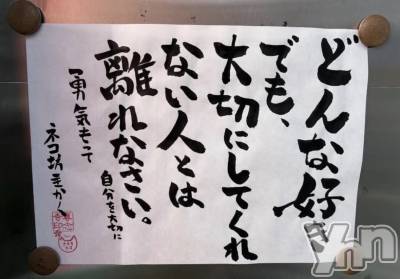 どんな好き
でも、
大切にしてくれ
ない人とは
離れなさい。
自分を大切に
勇気もって
ネコ坊主かく